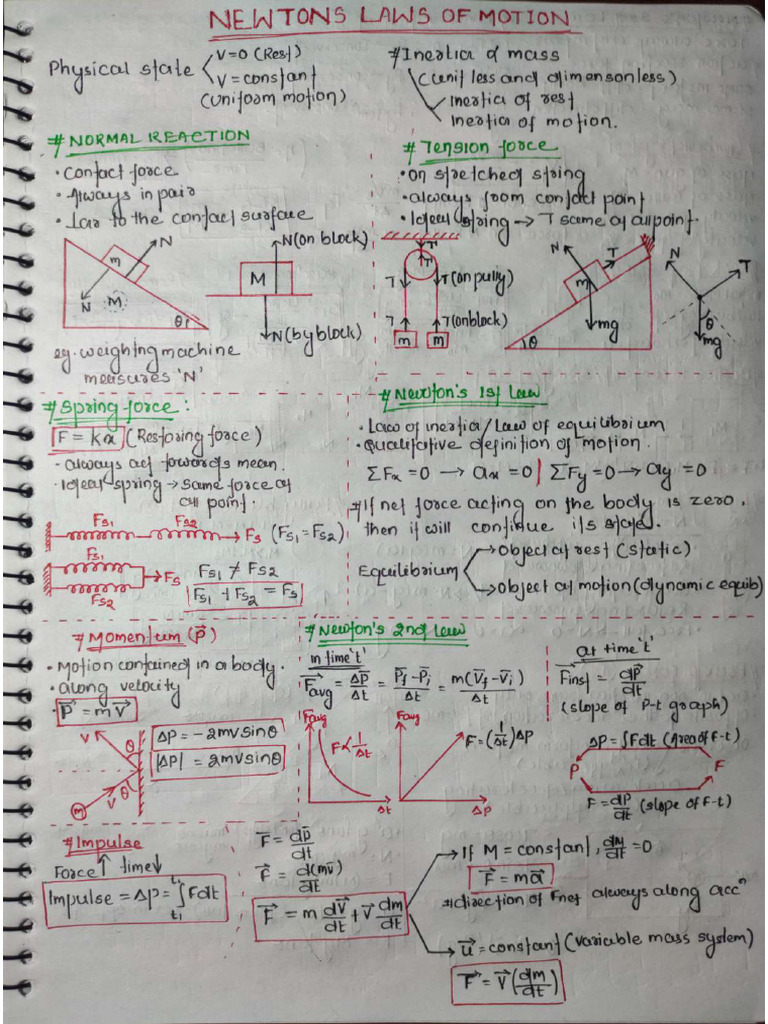 NEWTONS LAWS OF MOTION
Physical state
V=0 (Rest)
V = constant
(uniform motion)
#Inertia α mass
(unit less and dimensonless)
inertia of rest
inertia of motion.
# NORMAL REACTION
• Contact force
• Always in pair
• Lar to the contact surface
N
m
N
M
θ
N(on block)
M
N(by block)
eg. weighting machine
measures 'N'
# Tension force
• on stretched string
• always from contact point
• Ideal string → T same at all point.
T'
T'
T
T(on pully)
T
T(on block)
m
m
N
T
m
mg
θ
N
T
θ
mg
# Spring force :
F = kx (Restoring force)
• always act towards mean.
• Ideal spring → same force at
all point.
Fs1 Fs2
Fs (Fs1 = Fs2)
Fs1
Fs
Fs2
Fs1 ≠ Fs2
Fs1 + Fs2 = Fs
# Newton's 1st law
• Law of inertia/Law of equilibrium
• Qualitative definition of motion.
ΣFx = 0 → ax = 0 | ΣFy = 0 → ay = 0
# If net force acting on the body is zero.
then it will continue its state.
Equilibrium
object at rest (static)
object at motion (dynamic equib)
# Momentum (P⃗)
• Motion contained in a body.
• along velocity
• P⃗ = mV⃗
V
θ
θ
V
m
ΔP = -2mvsinθ
|ΔP| = 2mvsinθ
# Newton's 2nd law
in time 't'
F⃗avg = ΔP⃗/Δt = (P⃗f - P⃗i)/Δt = m(V⃗f - V⃗i)/Δt
at time 't'
F⃗inst = dP⃗/dt
(slope of P-t graph)
Favg
F ∝ 1/Δt
Δt
Favg
F = (1/Δt)ΔP
ΔP
ΔP = ∫Fdt (Area of F-t)
P F
F = dP/dt (slope of F-t)
# Impulse
Force↑ time↓
Impulse = ΔP = ∫Fdt
F⃗ = dp⃗/dt
F⃗ = d(mv⃗)/dt
F⃗ = m dV⃗/dt + V⃗ dm/dt
If M = constant, dm/dt = 0
F⃗ = ma⃗
#direction of Fnet always along accⁿ
u⃗ = constant (variable mass system)
F⃗ = V⃗(dm/dt)